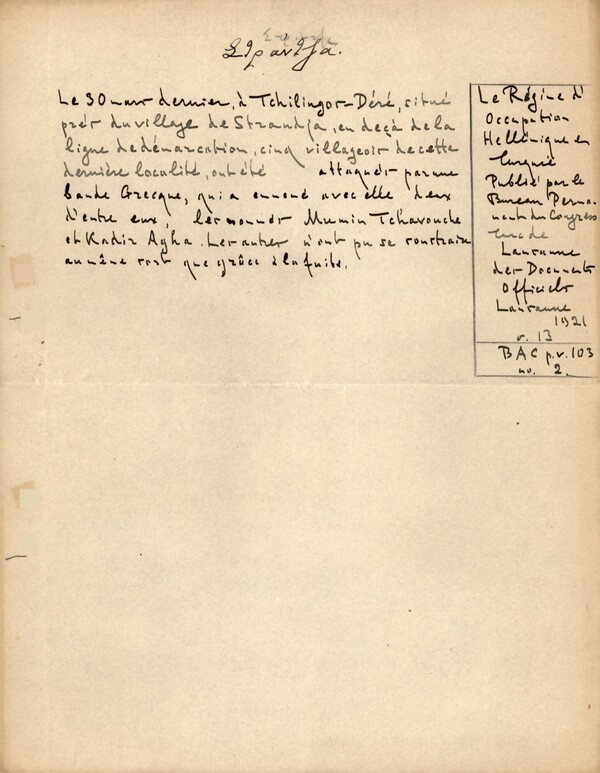 Le 30 mars dernier, à Tchilingor-Déré, situé
près du village de Strandja, en deçà de la
ligne de démarcation, cinq villageois de cette
dernière localité, ont été attaqués par une
bande Grecque, qui a emmené avec elle deux
d'entre eux, les nommés Mumin Tchavouche
et Kadir Agha. Les autres n'ont pu se soustraire
au même sort que grâce à la fuite.
Le Régime d'
Occupation
Hellénique en
Turquie
Publié par le
Bureau Perma-
nent du Congress
Turc de
Lausanne
des Documents
Officiels
Lausanne
1921
v. 13
BAC p.v. 103
no. 2.